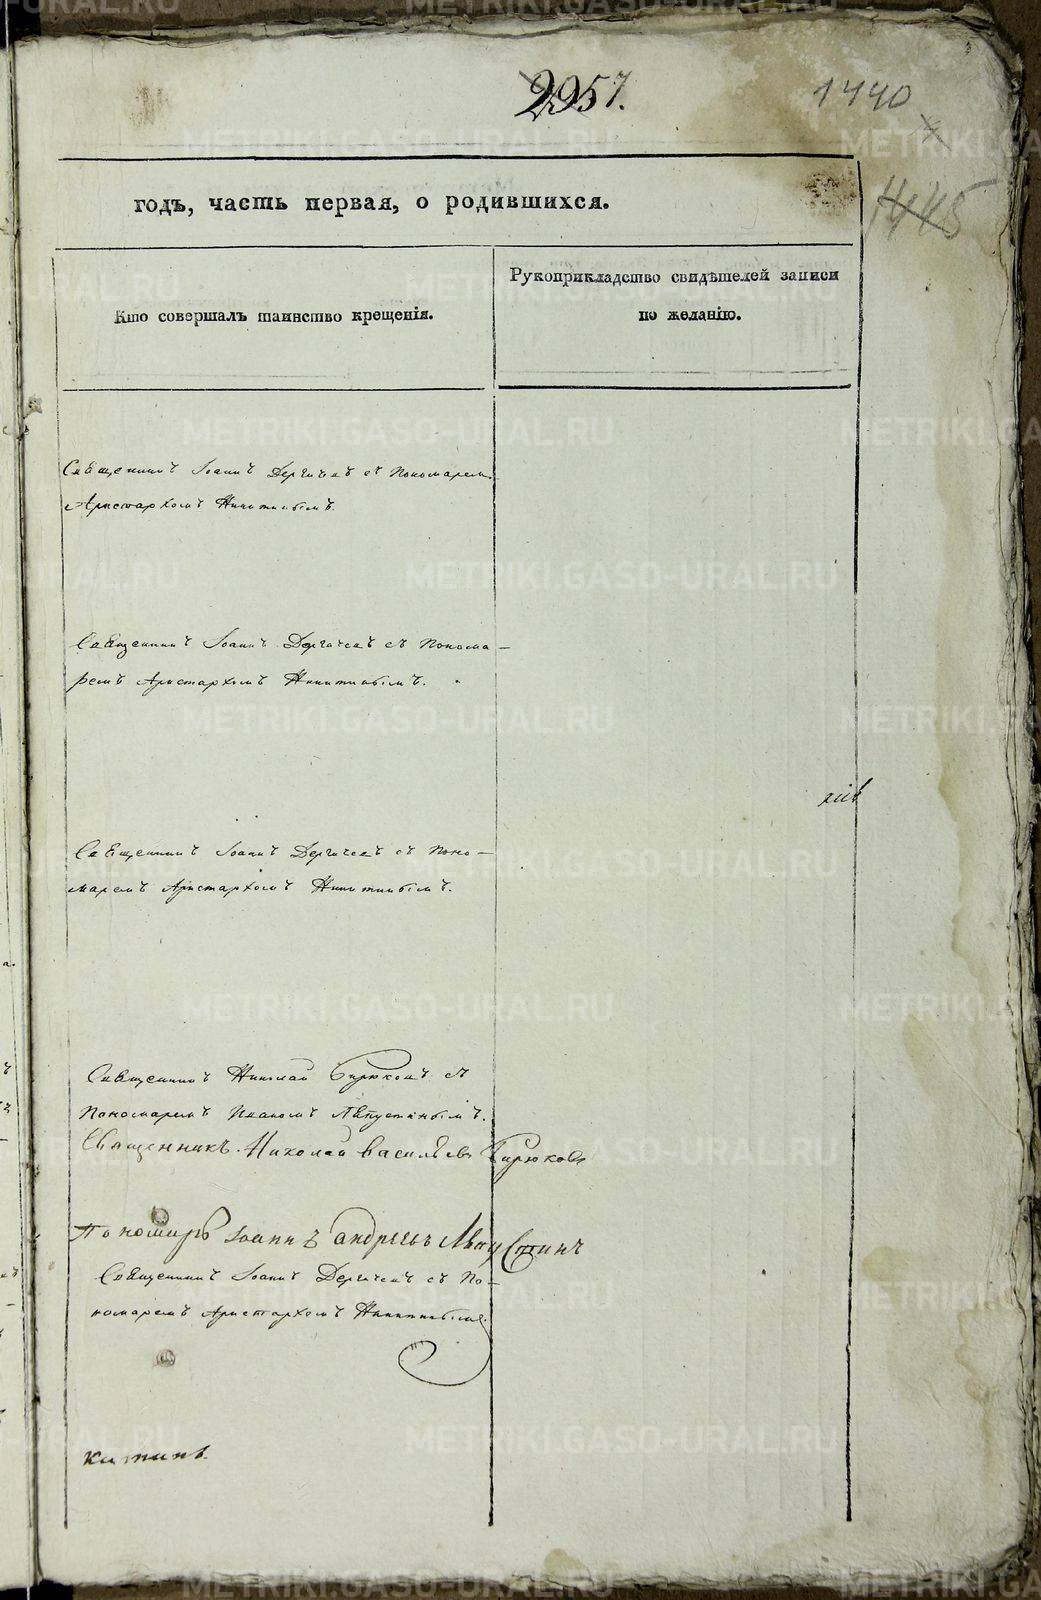 2957.
1440
1445
годъ, часть первая, о родившихся.
Кто совершалъ таинство крещенія.
Рукоприкладство свидѣтелей записи
по желанію.
Священникъ Іоаннъ Дергачевъ съ Пономаремъ
Аристархомъ Никитинымъ.
Священникъ Іоаннъ Дергачевъ съ Понома-
ремъ Аристархомъ Никитинымъ.
Священникъ Іоаннъ Дергачевъ съ Поно-
маремъ Аристархомъ Никитинымъ.
Священникъ Николай Бирюковъ съ
Пономаремъ Иваномъ Августинымъ.
Священникъ Николай Васильевъ Бирюковъ
Пономарь Іоаннъ Андреевъ
Священникъ Іоаннъ Дергачевъ съ По-
номаремъ Аристархомъ Никитинымъ.
METRIKI.GASO-URAL.RU